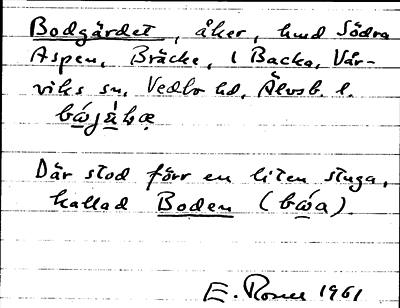 Bodgärdet, åker, hmd Södra
Aspen, Bräcke, 1 Backa, Vår-
viks sn, Vedbo hd, Älvsb. l.
Där stod förr en liten stuga,
kallad Boden (bώa).
E. Rosell 1961